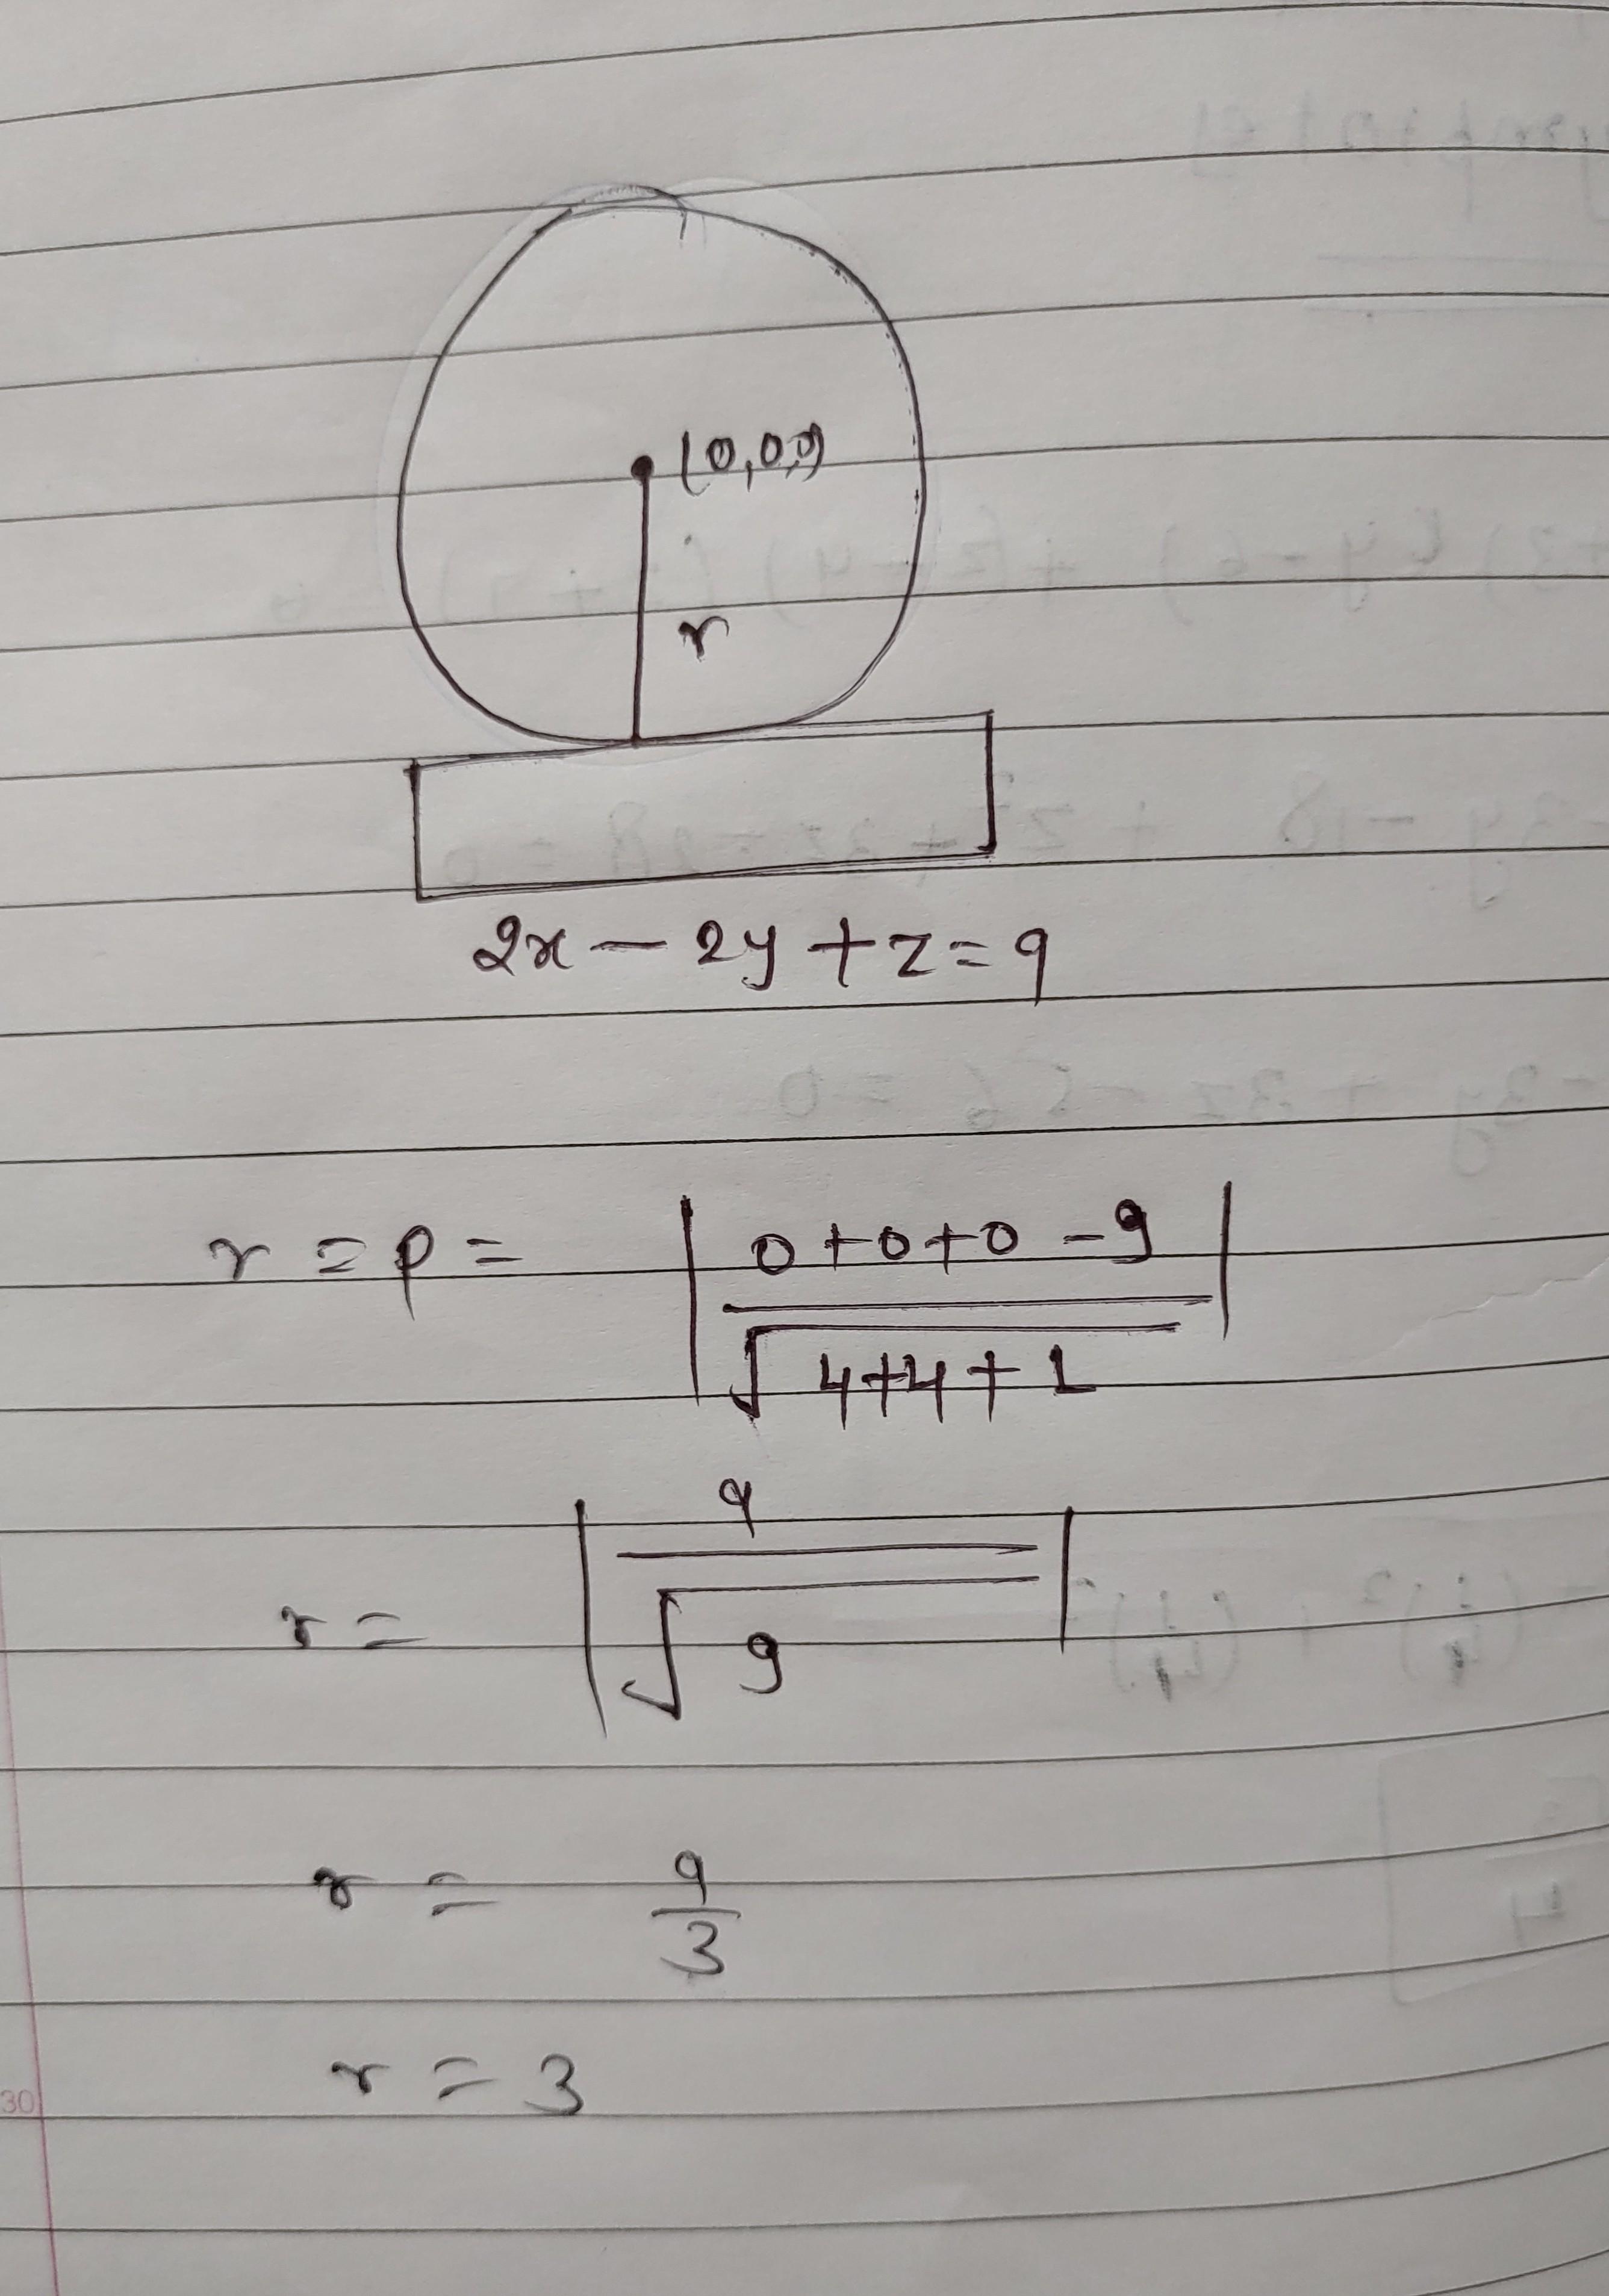 (0,0,0)
r
2x - 2y + z = 9
r = p = | 0 + 0 + 0 - 9 / √4+4+1 |
r = | 9 / √9 |
r = 9/3
r = 3
30